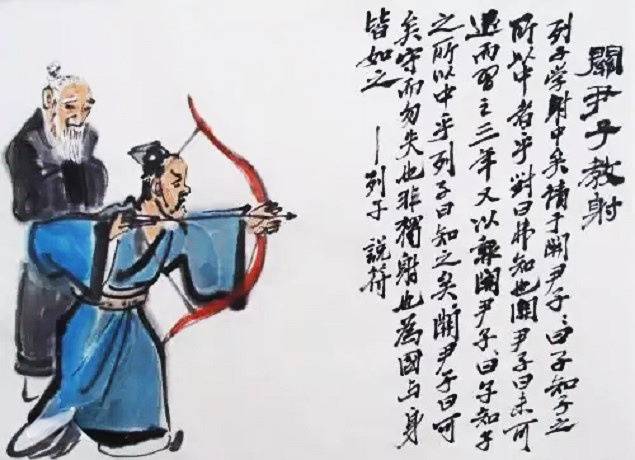 關尹子教射
列子学射中矣请于關尹子、曰子知子之
所以中者乎對曰弗知也關尹子曰未可
退而習之三年又以報關尹子、曰子知子
之所以中乎列子曰知之矣關尹子曰可
矣守而勿失也非獨射也為國与身
皆如之 —列子 說符